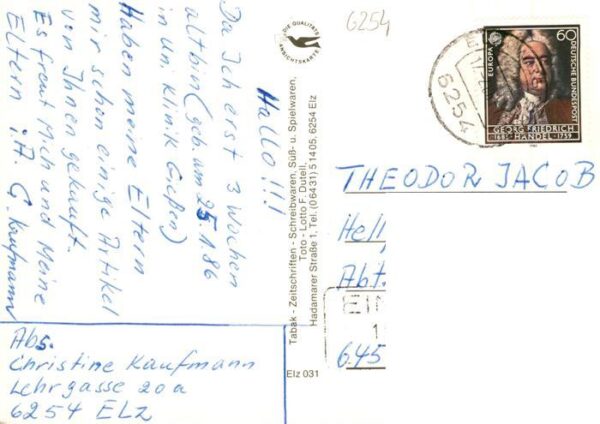 Hallo!!!
Da Ich erst 3 Wochen
alt bin (geb. am 25.1.86
in uni. Klinik Gießen)
Haben meine Eltern
mir schon einige Artikel
von Ihnen gekauft.
Es freut Mich und Meine
Eltern i.A. C. Kaufmann
Abs.
Christine Kaufmann
Lehrgasse 20a
6254 ELZ
DIE QUALITÄTS
ANSICHTSKARTE
Tabak - Zeitschriften - Schreibwaren, Süß- u. Spielwaren,
Toto - Lotto F. Dutell,
Hadamarer Straße 1, Tel. (06431) 51405, 6254 Elz
Elz 031
6254
6254
EUROPA
60
DEUTSCHE BUNDESPOST
GEORG FRIEDRICH
1685 HÄNDEL 1759
THEODOR JACOB
Heli
Abt.
E
1
645